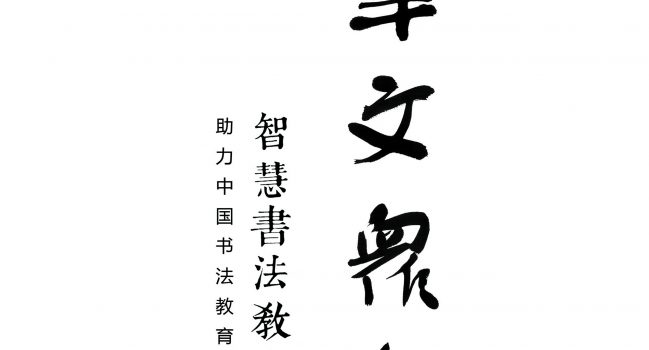 文衆
智慧書法教
助力中国书法教育